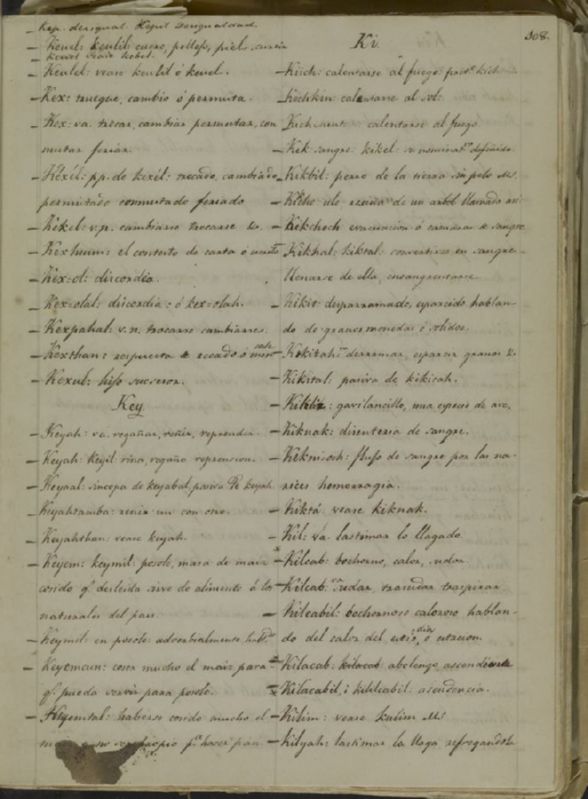 308.
- Kep. desigual. Kepil desigualdad
- Keuel: keulil: cuero, pellejo, piel,
- Keuel vease kobel.
- Keulel: vease keulil ó keuel.
- Kex: trueque, cambio ó permuta.
- Kex: va. trocar, cambiar permutar, con
mutar feriar.
- Kexil: pp. de kexil: trocado, cambiado
permutado conmutado feriado
- Kexel: v.n. cambiarse trocarse &.
- Kexhuun: el contesto de carta ó
- Kex-ol: discordia.
- Kex-olal: discordia: ó kex-olah.
- Kexpahal: v.n. trocarse cambiarse.
- Kexthan: respuesta de recado ó
- Kexul: hijo sucesor.
Key.
- Keyah: va. regañar, reñir, reprender.
- Keyah: keyil riña, regaño reprension.
- Keyaal: sincopa de keyabal, pasiva de keyah.
- Keyahtamba: reñir un con otro.
- Keyahthan: vease keyah.
- Keyem: keymil: posole, masa de maiz
cocido q.e desleida sirve de alimento á los
naturales del pais
- Keymil: en posole: adverbialmente
- Keyemcun: cocer mucho el maiz para
q.e pueda servir para posole.
- Keyemtal: haberse cocido mucho el
maiz
Ki.
- Kiich: calentarse al fuego:
- Kichkin: calentarse al sol:
- calentarse al fuego
- Kik sangre: kikel
- Kikbil: perro de la tierra sin pelo Ms.
- ule resina de un arbol llamado asi
- Kikchoch evacuacion ó camaras de sangre
- Kikhal. kiktal: convertirse en sangre
llenarse de ella, ensangrentarse
- Kikit: desparramado, esparcido hablan-
do de granos monedas ó solidos.
- Kikitah: derramar, esparcir granos &.
- Kikital: pasiva de kikitah.
- gavilancillo, una especie de ave.
- Kiknak: disenteria de sangre.
- flujo de sangre por las na-
rices hemorragia.
- Kiktá: vease kiknak.
- Kil: va. lastimar lo llagado
- Kilcab: bochorno, calor, sudor
- Kilcab: sudar, trasudar traspirar
- Kilcabil: bochornoso caloroso hablan-
do del calor del dia, ó estacion.
- Kilacab. kilacab: abolengo ascendiente
- Kilacabil; kikilcabil: ascendencia.
- Kilim: vease kulim Ms
- Kilyah: lastimar la llaga refregandola